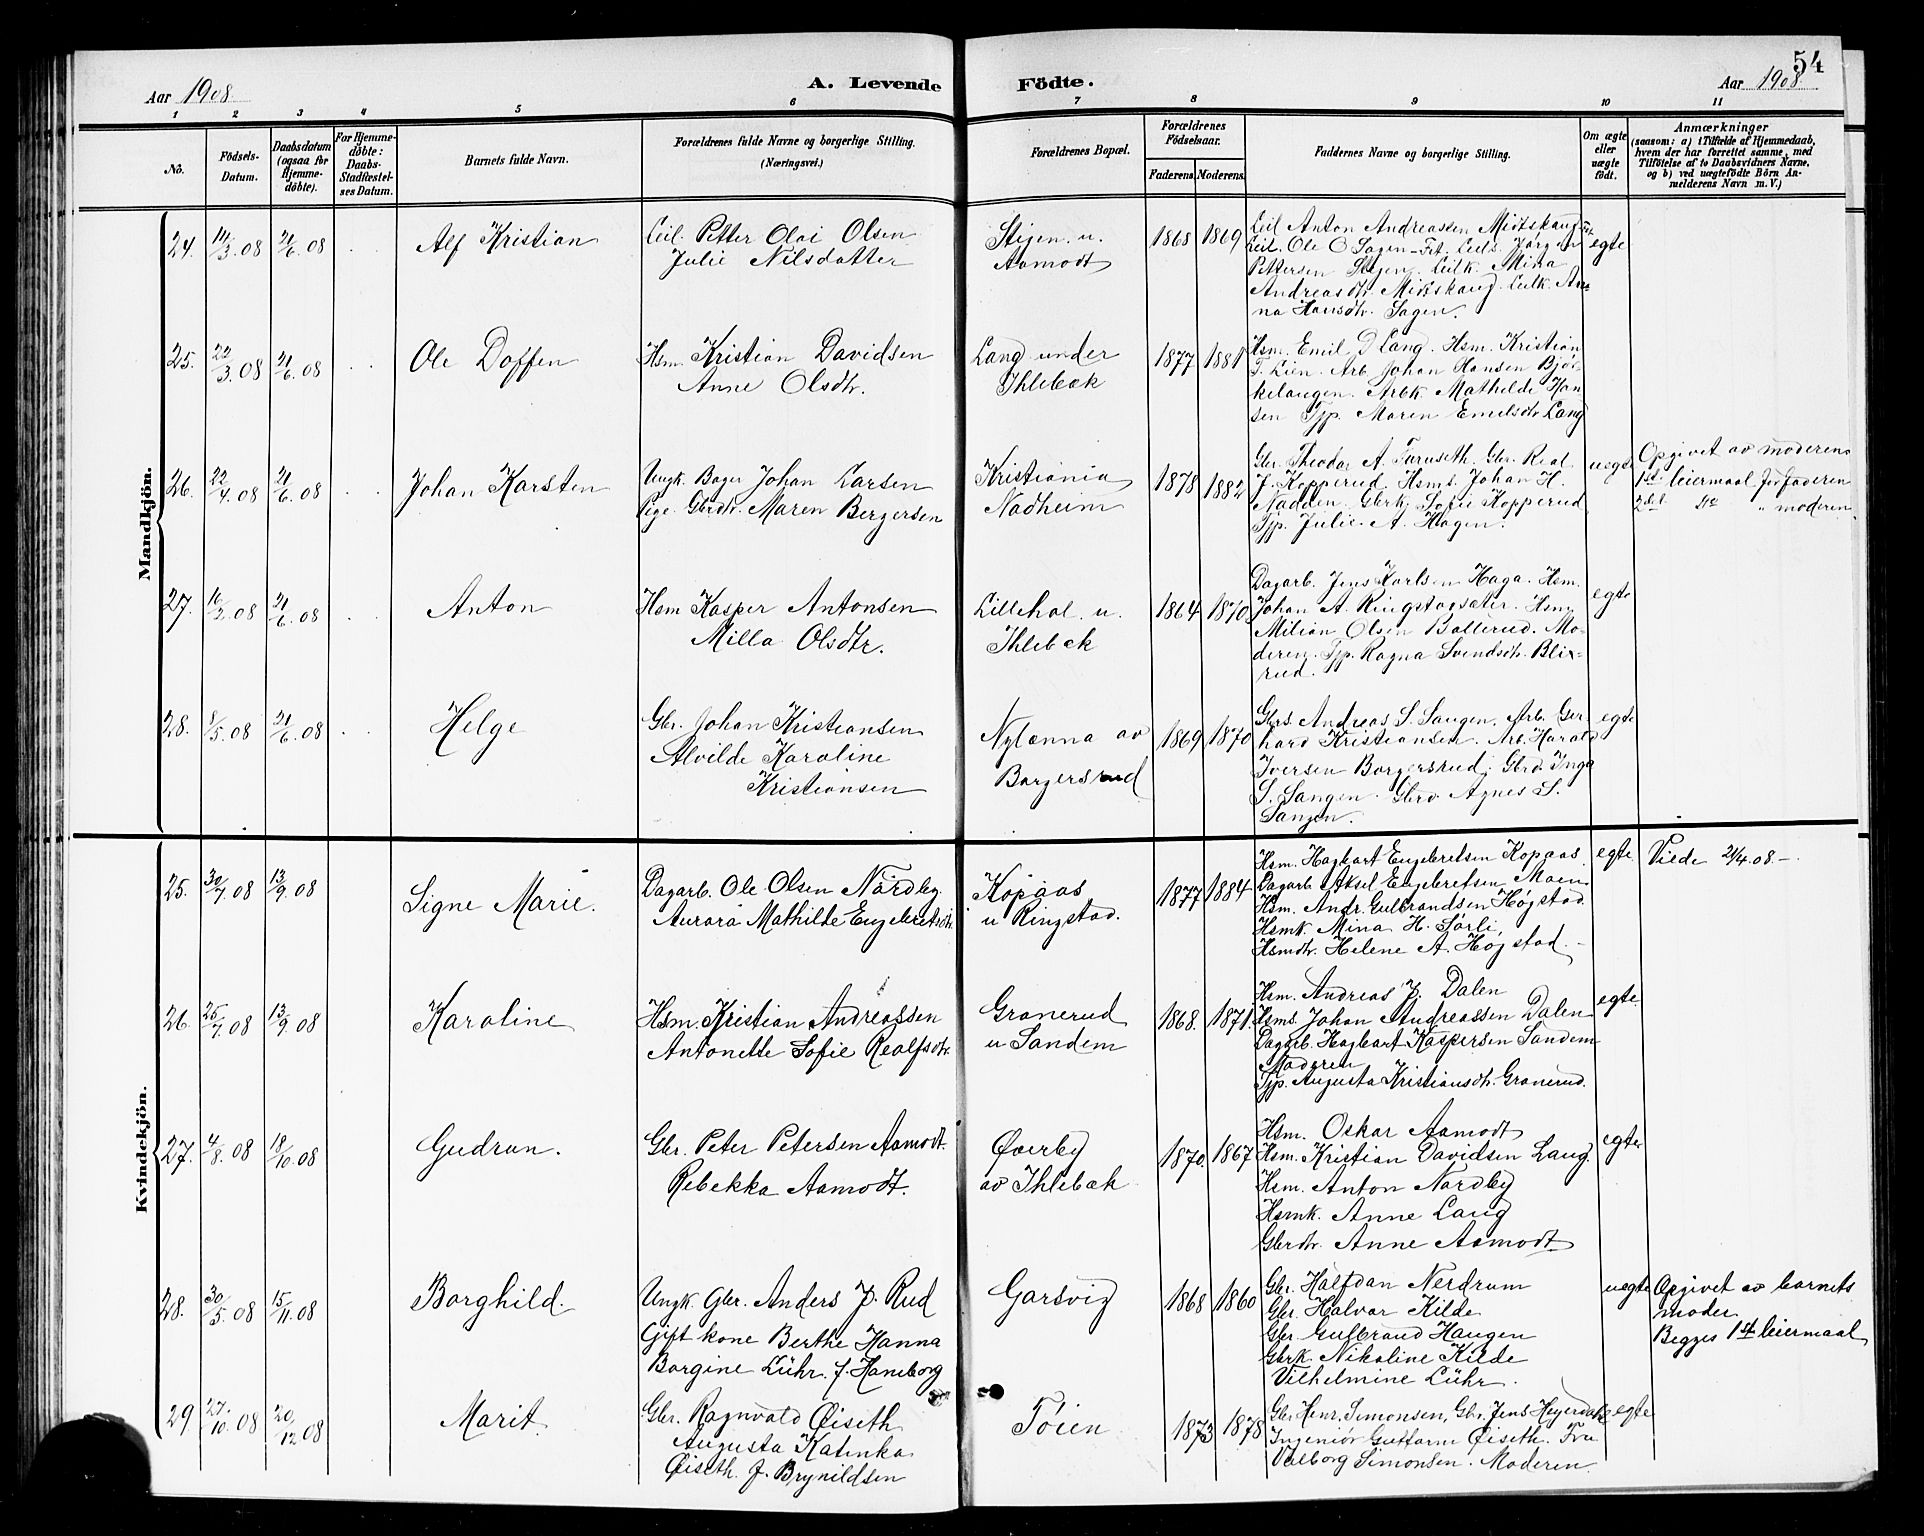 54
Aar 1908
A. Levende Födte.
Aar 1908
1 2 3 4 5 6 7 8 9 10 11
No.
Födsels-Datum.
Daabsdatum (ogsaa for Hjemme-döbte).
For Hjemme-döbte: Daabs-Stadfæstel-ses Datum.
Barnets fulde Navn.
Forældrenes fulde Navne og borgerlige Stilling.
(Næringsvei.)
Forældrenes Bopæl.
Forældrenes Födselsaar.
Faderens. Moderens.
Faddernes Navne og borgerlige Stilling.
Om ægte eller uægte födt.
Anmærkninger
(saasom: a) i Tilfælde af Hjemmedaab,
hvem der har forrettet samme, med
Tilföielse af to Daabsvidners Navne,
og b) ved uægtefödte Börn An-
melderens Navn m. V.)
Mandkjön.
24. 14/3.08 21/6.08 Alf Kristian
Leil. Petter Olai Olsen
Julie Nilsdatter
Stigen u.
Aamodt
1868 1869
Leil Anton Andreassen Mitskaug Frt.
Leil. Ole O Sagen - Frt. Leils. Jørgen
Pettersen Stigen. Leilk. Mina
Andreasdtr. Mitskaug. Leilk. An-
na Hansdtr. Sagen.
egte
25. 22/3.08 21/6.08 Ole Doffen
Hsm. Kristian Davidsen
Anne Olsdtr.
Lang under
Ihlebæk
1877 1881
Hsm. Emil D Lang. Hsm. Kristian
T. Lien. Arb. Johan Hansen Bjør-
kelangen. Arbk. Mathilde Han
sen Tjp. Maren Emilsdtr Lang
26. 22/4.08 21/6.08 Johan Karsten
Ungk. Bager Johan Larsen
Pige. Gbrdtr. Maren Bergersen
Kristiania
Nadheim
1878 1882
Gbr. Theodor A. Furuseth. Gbr. Real
J. Kopperud. Hsms. Johan H.
Nadden. Gbrk. Sofie Kopperud
Tjp. Julie A. Hagen.
uegte
Opgivet av moderen
1ste leiermaal for faderen
2det do " moderen.
27. 16/2.08 21/6.08 Anton
Hsm Kasper Antonsen
Milla Olsdtr.
Lillehol u.
Ihlebæk
1864 1870
Dagarb. Jens Karlsen Haga. Hsm.
Johan A. Ringstadsæter. Hsm.
Milian Olsen Bollerud. Mo-
deren. Tjp. Ragna Svendsdtr. Blix-
rud.
egte
28. 8/5.08 21/6.08 Helge
Gbr. Johan Kristiansen
Alvilde Karoline
Kristiansen
Nylænna av
Borgersrud
1869 1870
Gbrs. Andreas S. Sangen. Arb. Ger-
hard Kristiansen. Arb. Harald
Iversen Borgersrud; Gbrd. Inga
S. Sangen. Gbrd Agnes S.
Sangen.
egte
Kvindekjön.
25. 30/7.08 13/9.08 Signe Marie.
Dagarb. Ole Olsen Nordby.
Aurora Mathilde Engebretsdtr.
Kopaas
u Ringstad.
1877 1884
Hsm. Hagbart Engebretsen Kopaas
Dagarb Aksel Engebretsen Moen
Hsm. Andr. Gulbrandsen Høgstad.
Hsmk. Mina H. Sørli,
Hsmdtr. Helene A. Høgstad.
egte
Viede 21/4.08.-
26. 25/7.08 13/9.08 Karoline
Hsm. Kristian Andreassen
Antonette Sofie Realfsdtr.
Granerud
u Sandem
1868. 1871.
Hsm. Andreas P. Dalen
Hsms. Johan Andreassen Dalen
Dagarb. Hagbart Kaspersen Sandem
Moderen
Tjp. Augusta Kristiansdtr. Granerud.
egte.
27. 4/8.08 18/10.08 Gudrun.
Gbr. Peter Petersen Aamodt.
Rebekka Aamodt.
Øverby
av Ihlebæk
1870. 1867
Hsm. Oskar Aamodt
Hsm. Kristian Davidsen Lang.
Hsm. Anton Nordby
Hsmk. Anne Lang
Gbrdtr. Anne Aamodt
egte
28. 30/5.08 15/11.08 Borghild.
Ungk. Gbr. Anders P. Rud
Gift kone Berthe Hanna
Borgine Lühr f. Haneborg
Garsvig
1868 1860
Gbr. Halfdan Nerdrum
Gbr. Halvor Kilde
Gbr Gulbrand Haugen
Gbrk. Nikoline Kilde
Vilhelmine Lühr.
uegte
Opgivet av barnets
moder
Begges 1ste leiermaal
29. 27/10.08 20/12 08 Marit
Gbr. Ragnvald Øiseth
Augusta Katinka
Øiseth f. Brynildsen
Tøien
1873 1878
Gbr Henr. Simonsen, Gbr. Jens Heyerdahl
Ingeniør Guttorm Øiseth. Fru
Valborg Simonsen. Moderen.
egte